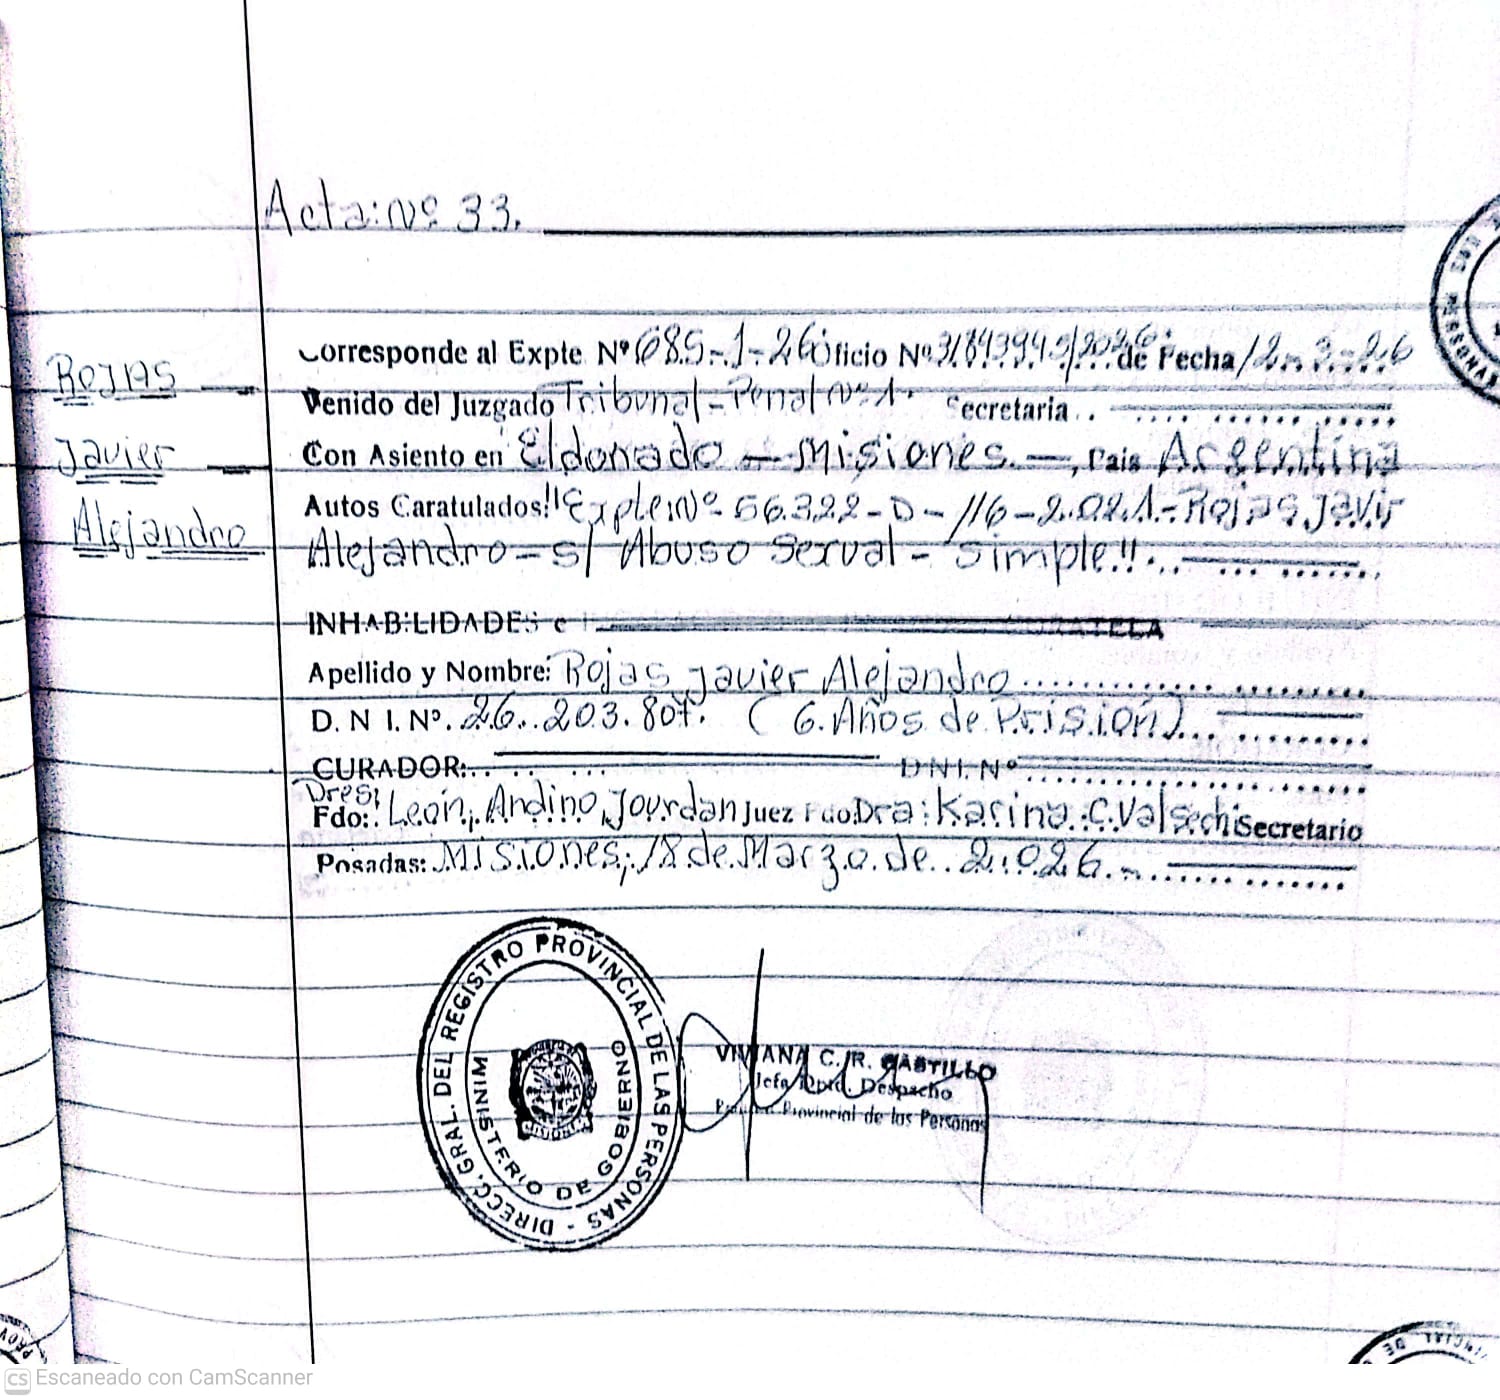 Acta: Nº 33.
Rojas
Javier
Alejandro
Corresponde al Expte Nº 685-1-26 Oficio Nº 31843943/2026 de Fecha 12-3-26
Venido del Juzgado Tribunal-Penal Nº 1. Secretaria..
Con Asiento en Eldorado - Misiones. -, Pais Argentina
Autos Caratulados: "Expte Nº 56.322-D-116-2.021.- Rojas Javir
Alejandro - s/ Abuso Sexual - simple."
INHABILIDADES e
CURATELA
Apellido y Nombre: Rojas Javier Alejandro
D. N I. Nº. 26.203.807. (6 Años de Prisión)
CURADOR: DNI. Nº
Dres:
Fdo: León, Andino, Jourdan Juez Fdo. Dra: Karina C. Valsechi Secretario
Posadas: Misiones, 18 de Marzo de 2.026.-
DIRECC. GRAL. DEL REGISTRO PROVINCIAL DE LAS PERSONAS -
MINISTERIO DE GOBIERNO
MISIONES
VIVIANA C. R. CASTILLO
Jefa Dpto. Despacho
Provincial de las Personas
CS Escaneado con CamScanner